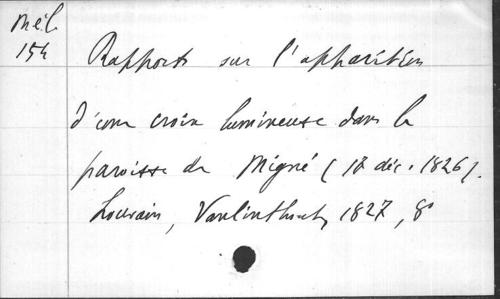 Mél.
154
Rapports sur l'apparition
d'une croix lumineuse dans la
paroisse de Migné (18 déc. 1826).
Louvain, Vanlinthout, 1827, 8°